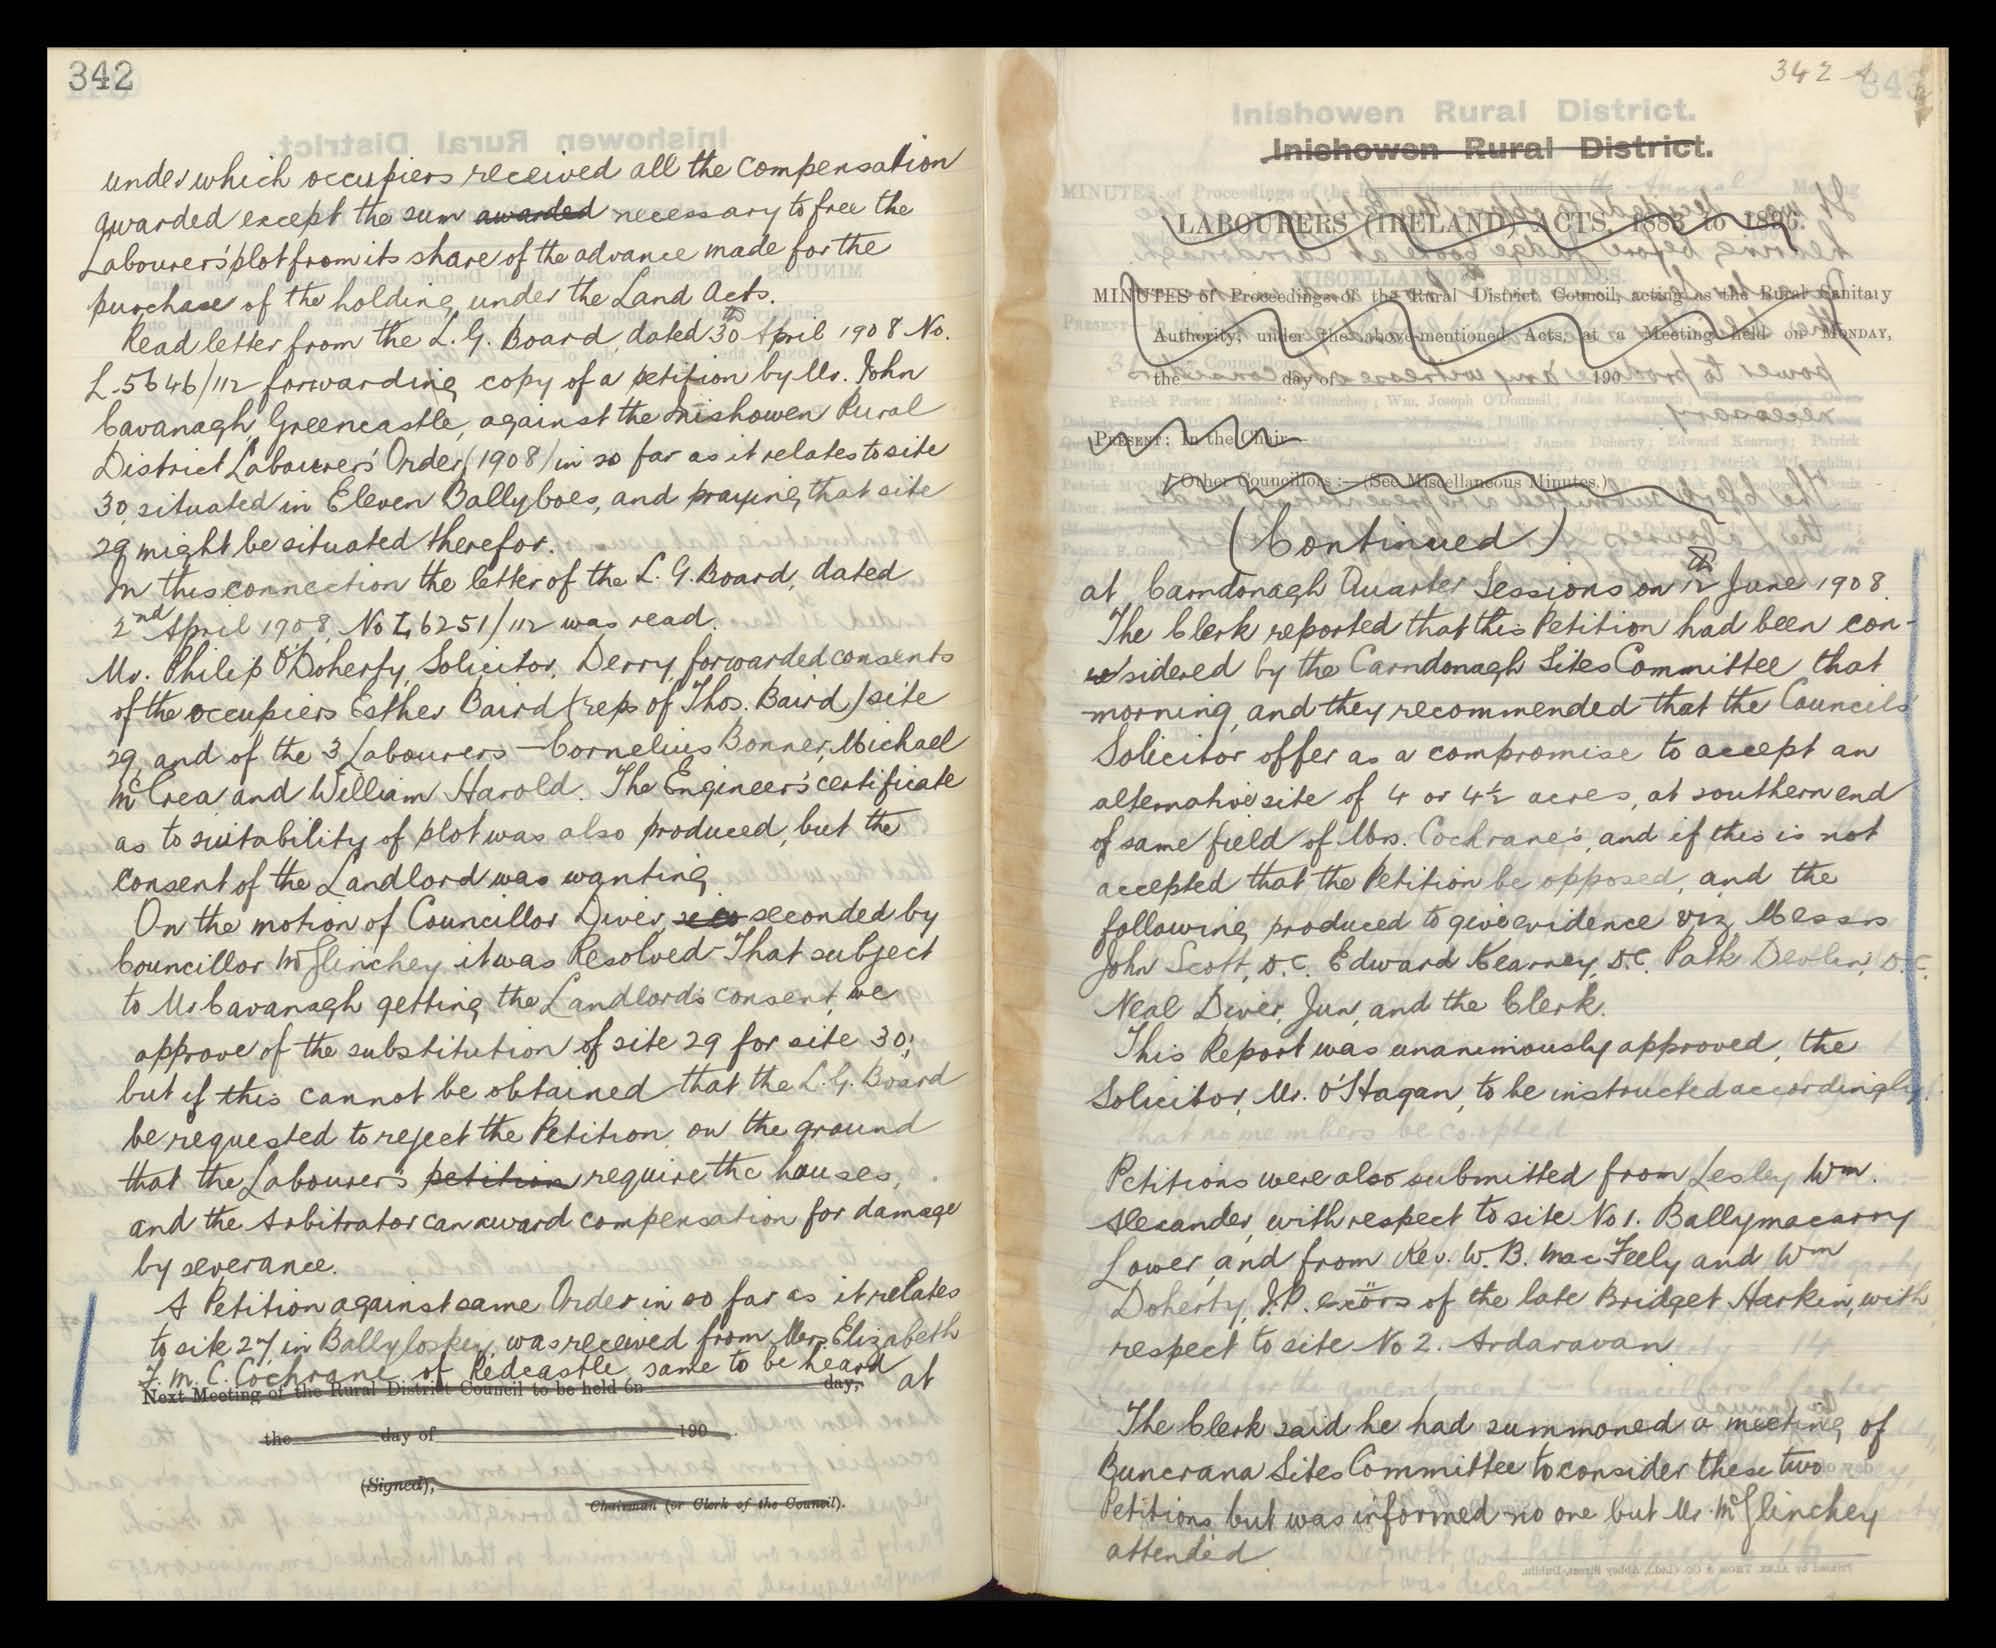 342
under which occupiers received all the compensation
awarded except the sum awarded necessary to free the
Labourers' plot from its share of the advance made for the
purchase of the holding under the Land Acts.
Read letter from the L. G. Board, dated 30th April 1908 No.
L.5646/112 forwarding copy of a petition by Mr. John
Cavanagh, Greencastle, against the Inishowen Rural
District Labourers' Order (1908) in so far as it relates to site
30, situated in Eleven Ballyboes, and praying that site
29 might be situated therefor.
In this connection the letter of the L. G. Board, dated
2nd April 1908, No L, 6251/112 was read.
Mr. Philip O'Doherty, Solicitor, Derry, forwarded consents
of the occupiers Esther Baird (reps of Thos. Baird) site
29, and of the 3 Labourers – Cornelius Bonner, Michael
McCrea and William Harold. The Engineer's certificate
as to suitability of plot was also produced, but the
consent of the Landlord was wanting.
On the motion of Councillor Diver, seco seconded by
Councillor McGlinchey it was Resolved – That subject
to Mr Cavanagh getting the Landlord's consent, we
approve of the substitution of site 29 for site 30;
but if this cannot be obtained that the L. G. Board
be requested to reject the Petition on the ground
that the Labourers petition require the houses,
and the Arbitrator can award compensation for damage
by severance.
A Petition against same Order in so far as it relates
to site 27 in Ballyloskey, was received from Mrs. Elizabeth
F. M. C. Cochrane of Redcastle, same to be heard at
Next Meeting of the Rural District Council to be held on day,
the day of 190 .
(Signed),
Chairman (or Clerk of the Council).
342 A
343
Inishowen Rural District.
Inishowen Rural District.
LABOURERS (IRELAND) ACTS, 1883 to 1896.
MINUTES of Proceedings of the Rural District Council, acting as the Rural Sanitary
Authority, under the above-mentioned Acts, at a Meeting held on MONDAY,
the day of 190
PRESENT: In the Chair—
Other Councillors :—(See Miscellaneous Minutes.)
(Continued)
at Carndonagh Quarter Sessions on 12th June 1908.
The Clerk reported that this Petition had been con-
sidered by the Carndonagh Sites Committee that
morning, and they recommended that the Councils
Solicitor offer as a compromise to accept an
alternative site of 4 or 4½ acres, at southern end
of same field of Mrs. Cochrane's, and if this is not
accepted that the Petition be opposed, and the
following produced to give evidence viz, Messrs
John Scott, D.C. Edward Kearney, D.C. Patk Devlin, D.C.
Neal Diver, Jun, and the Clerk.
This Report was unanimously approved, the
Solicitor, Mr. O'Hagan, to be instructed accordingly.
Petitions were also submitted from Lesley Wm.
Alexander, with respect to site No 1. Ballymacarry
Lower, and from Rev. W. B. MacFeely and Wm
Doherty, J.P. exors of the late Bridget Harkin, with
respect to site No 2. Ardaravan
The Clerk said he had summoned a meeting of
Buncrana Sites Committee to consider these two
Petitions but was informed no one but Mr. McGlinchey
attended